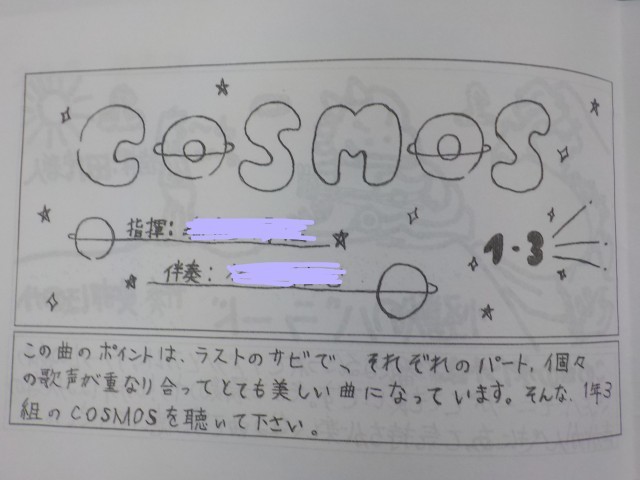 COSMOS
指揮:
伴奏:
1・3
この曲のポイントは、ラストのサビで、それぞれのパート、個々
の歌声が重なり合ってとても美しい曲になっています。そんな、1年3
組のCOSMOSを聴いて下さい。